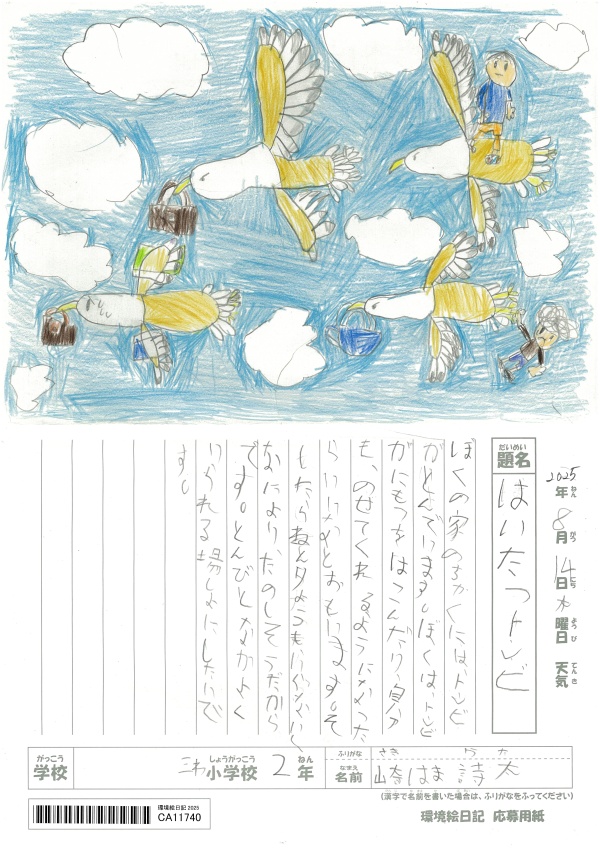 2025年ねん 8月がつ 14日にち 木曜日ようび 天気てんき
題名だいめい はいたつトンビ
ぼくの家のちかくには、トンビ
がとんでいます。ぼくは、トンビ
がにもつをはこんだり、自分
も、のせてくれるようになった
らいいなとおもいます。そ
したらねんりょうもいらないし
なにより、たのしそうだから
です。とんびとなかよく
いられる場しょにしたいで
す。
学校がっこう 三和小学校しょうがっこう 2年ねん
ふりがな さき うた
名前なまえ 崎はま 詩太
(漢字で名前を書いた場合は、ふりがなをふってください)
環境絵日記 2025
CA11740
環境絵日記 応募用紙